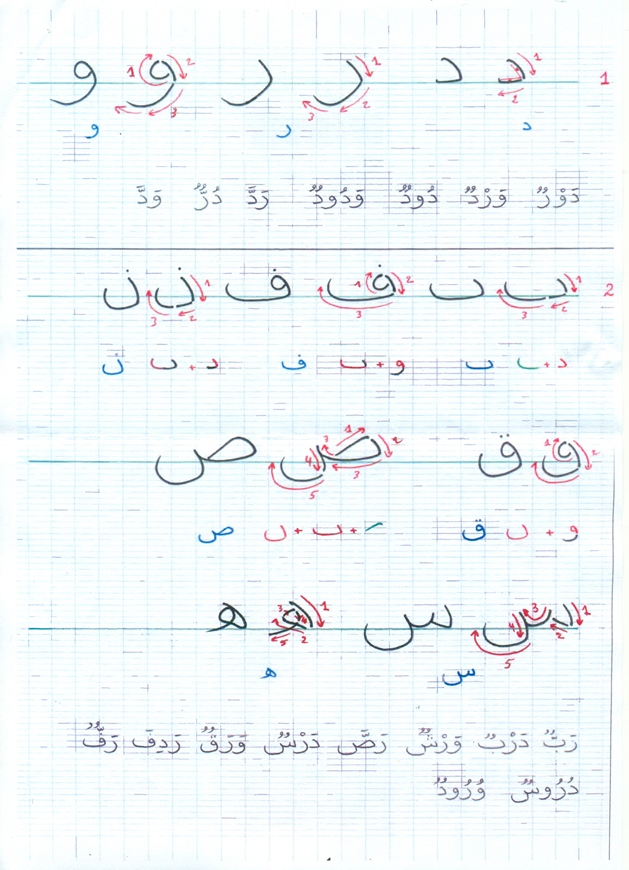 1 د د ر ر و و
د ر و
دَوْرٌ وَرْدٌ دُودٌ وَدُودٌ رَدَّ دُرٌّ وَدَّ
2 ٮ ٮ ف ف ن ن
د + ٮ ٮ و + ٮ ف د + ٮ ن
ق ق ص ص
و + ں ق + ٮ + ں ص
س س ه ه
س ه
رَبٌّ دَرْبٌ وَرْشٌ رَصَّ دَرْسٌ وَرَقٌ رَدِفَ رَفٌّ
دُرُوسٌ وُرُودٌ